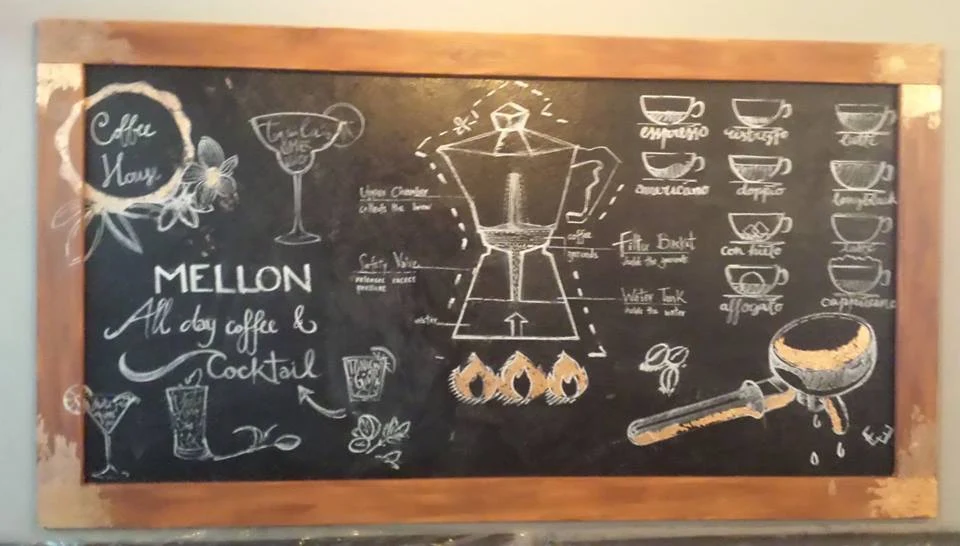 Coffee
House
MELLON
All day coffee &
Cocktail
Upper Chamber
collects the brew
Safety Valve
releases excess
pressure
water
coffee
grounds
Filter Basket
holds the grounds
Water Tank
holds the water
espresso
ristretto
latte
americano
doppio
longblack
con hielo
affogato
cappuccino